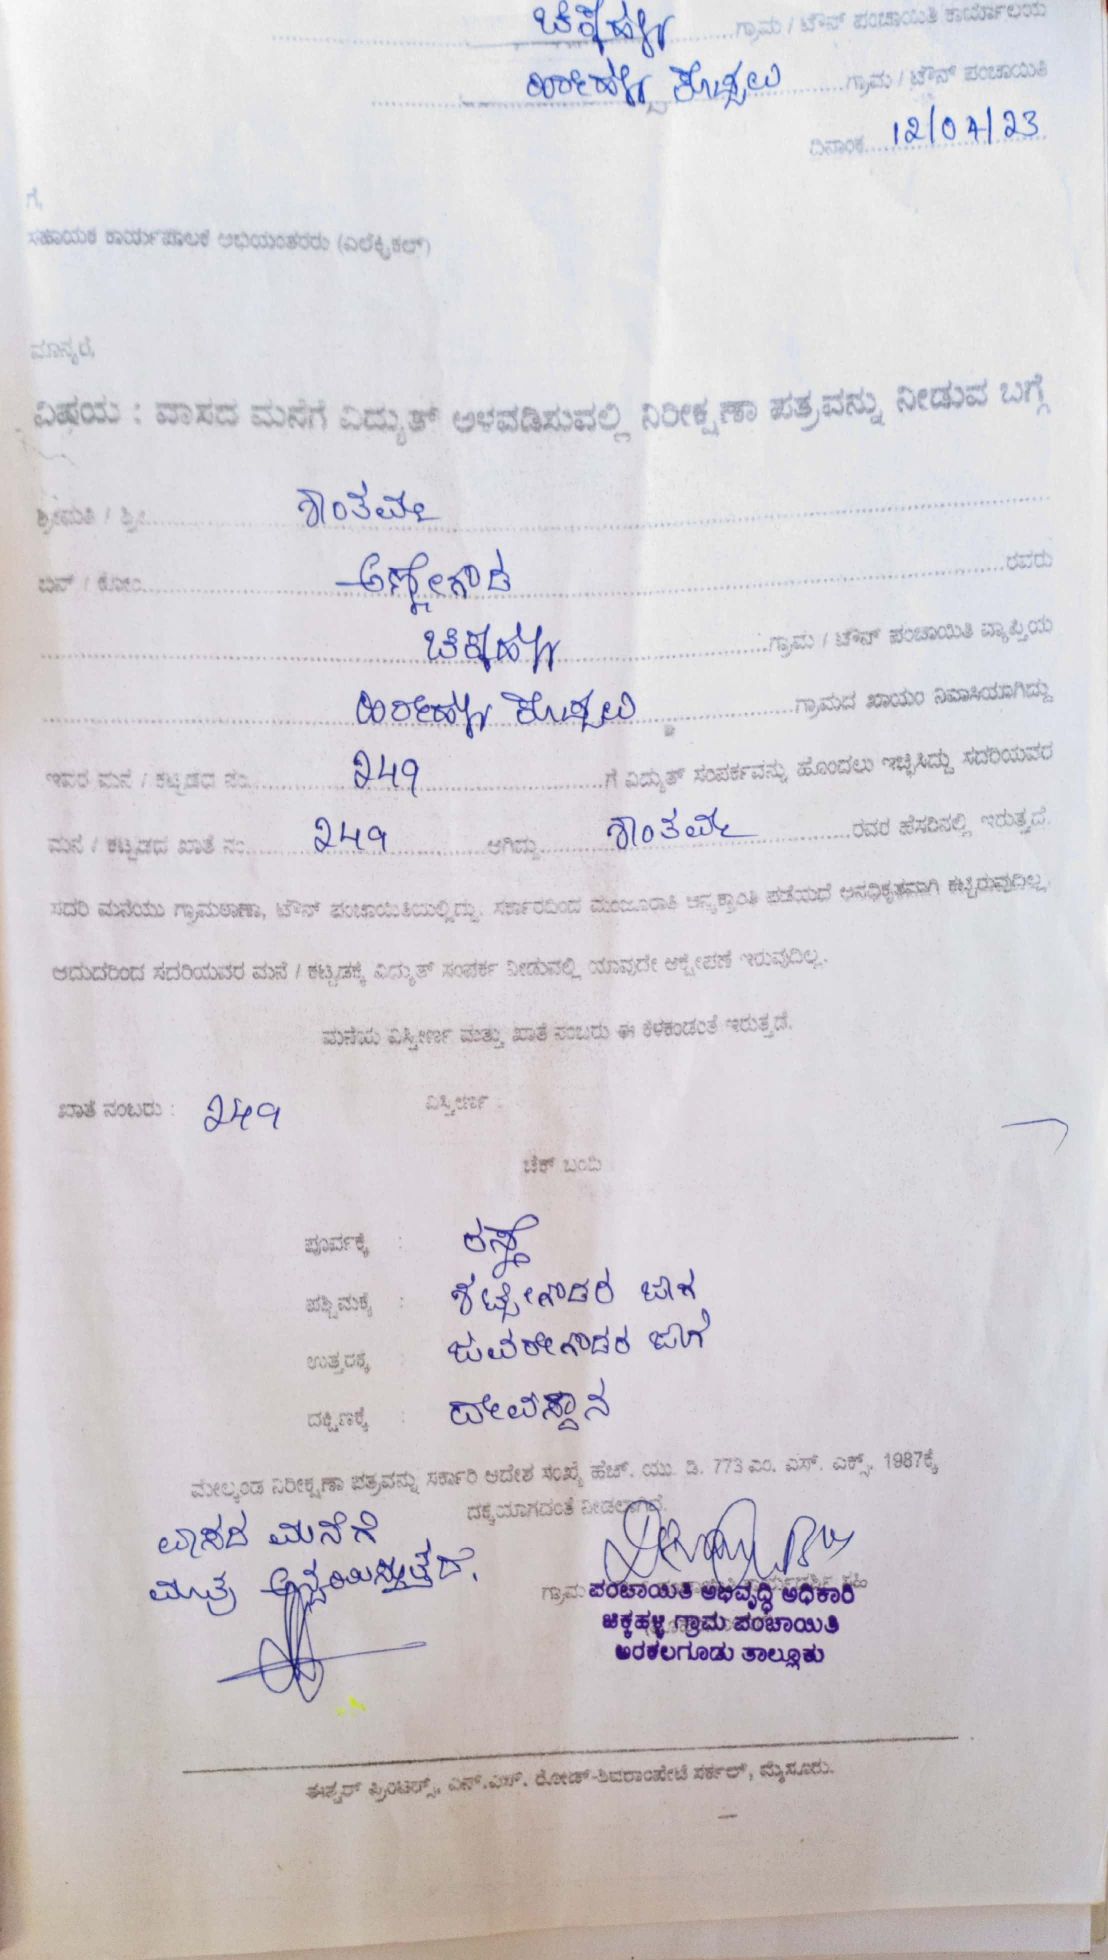 ಚಿಕ್ಕಹಳ್ಳಿ ಗ್ರಾಮ / ಟೌನ್ ಪಂಚಾಯಿತಿ ಕಾರ್ಯಾಲಯ
ಕೊಪ್ಪಲು ಗ್ರಾಮ / ಟೌನ್ ಪಂಚಾಯಿತಿ
ದಿನಾಂಕ 12/04/23
ಗೆ,
ಸಹಾಯಕ ಕಾರ್ಯಪಾಲಕ ಅಭಿಯಂತರರು (ಎಲೆಕ್ಟ್ರಿಕಲ್)
ಮಾನ್ಯರೆ,
ವಿಷಯ : ವಾಸದ ಮನೆಗೆ ವಿದ್ಯುತ್ ಅಳವಡಿಸುವಲ್ಲಿ ನಿರೀಕ್ಷಣಾ ಪತ್ರವನ್ನು ನೀಡುವ ಬಗ್ಗೆ
ಶ್ರೀಮತಿ / ಶ್ರೀ
ಬಿನ್ / ಕೋಂ ಅಣ್ಣೇಗೌಡ ರವರು
ಚಿಕ್ಕಹಳ್ಳಿ ಗ್ರಾಮ / ಟೌನ್ ಪಂಚಾಯಿತಿ ವ್ಯಾಪ್ತಿಯ
ಕೊಪ್ಪಲು ಗ್ರಾಮದ ಖಾಯಂ ನಿವಾಸಿಯಾಗಿದ್ದು
ಇವರ ಮನೆ / ಕಟ್ಟಡದ ನಂ. 249 ಗೆ ವಿದ್ಯುತ್ ಸಂಪರ್ಕವನ್ನು ಹೊಂದಲು ಇಚ್ಛಿಸಿದ್ದು ಸದರಿಯವರ
ಮನೆ / ಕಟ್ಟಡದ ಖಾತೆ ನಂ. 249 ಆಗಿದ್ದು ರವರ ಹೆಸರಿನಲ್ಲಿ ಇರುತ್ತದೆ.
ಸದರಿ ಮನೆಯು ಗ್ರಾಮಠಾಣಾ, ಟೌನ್ ಪಂಚಾಯಿತಿಯಲ್ಲಿದ್ದು, ಸರ್ಕಾರದಿಂದ ಮಂಜೂರಾತಿ ಅನ್ಯಕ್ರಾಂತಿ ಪಡೆಯದೆ ಅನಧಿಕೃತವಾಗಿ ಕಟ್ಟಿರುವುದಿಲ್ಲ.
ಆದುದರಿಂದ ಸದರಿಯವರ ಮನೆ / ಕಟ್ಟಡಕ್ಕೆ ವಿದ್ಯುತ್ ಸಂಪರ್ಕ ನೀಡುವಲ್ಲಿ ಯಾವುದೇ ಆಕ್ಷೇಪಣೆ ಇರುವುದಿಲ್ಲ.
ಮನೆಯ ವಿಸ್ತೀರ್ಣ ಮತ್ತು ಖಾತೆ ನಂಬರು ಈ ಕೆಳಕಂಡಂತೆ ಇರುತ್ತದೆ.
ಖಾತೆ ನಂಬರು : 249 ವಿಸ್ತೀರ್ಣ :
ಚೆಕ್ ಬಂದಿ
ಪೂರ್ವಕ್ಕೆ : ರಸ್ತೆ
ಪಶ್ಚಿಮಕ್ಕೆ : ಜಾಗ
ಉತ್ತರಕ್ಕೆ : ಜವರೇಗೌಡರ ಜಾಗ
ದಕ್ಷಿಣಕ್ಕೆ : ದೇವಸ್ಥಾನ
ಮೇಲ್ಕಂಡ ನಿರೀಕ್ಷಣಾ ಪತ್ರವನ್ನು ಸರ್ಕಾರಿ ಆದೇಶ ಸಂಖ್ಯೆ ಹೆಚ್. ಯು. ಡಿ. 773 ಎಂ. ಎಸ್. ಎಕ್ಸ್. 1987ಕ್ಕೆ
ದಕ್ಕೆಯಾಗದಂತೆ ನೀಡಲಾಗಿದೆ.
ವಾಸದ ಮನೆಗೆ
ಮಾತ್ರ ಅನ್ವಯಿಸುತ್ತದೆ.
ಗ್ರಾಮ
ಪಂಚಾಯಿತಿ ಅಭಿವೃದ್ಧಿ ಅಧಿಕಾರಿ
ಚಿಕ್ಕಹಳ್ಳಿ ಗ್ರಾಮ ಪಂಚಾಯಿತಿ
ಅರಕಲಗೂಡು ತಾಲ್ಲೂಕು
ಈಶ್ವರ್ ಪ್ರಿಂಟರ್ಸ್, ಎನ್.ಎಸ್. ರೋಡ್-ಶಿವರಾಂಪೇಟೆ ಸರ್ಕಲ್, ಮೈಸೂರು.